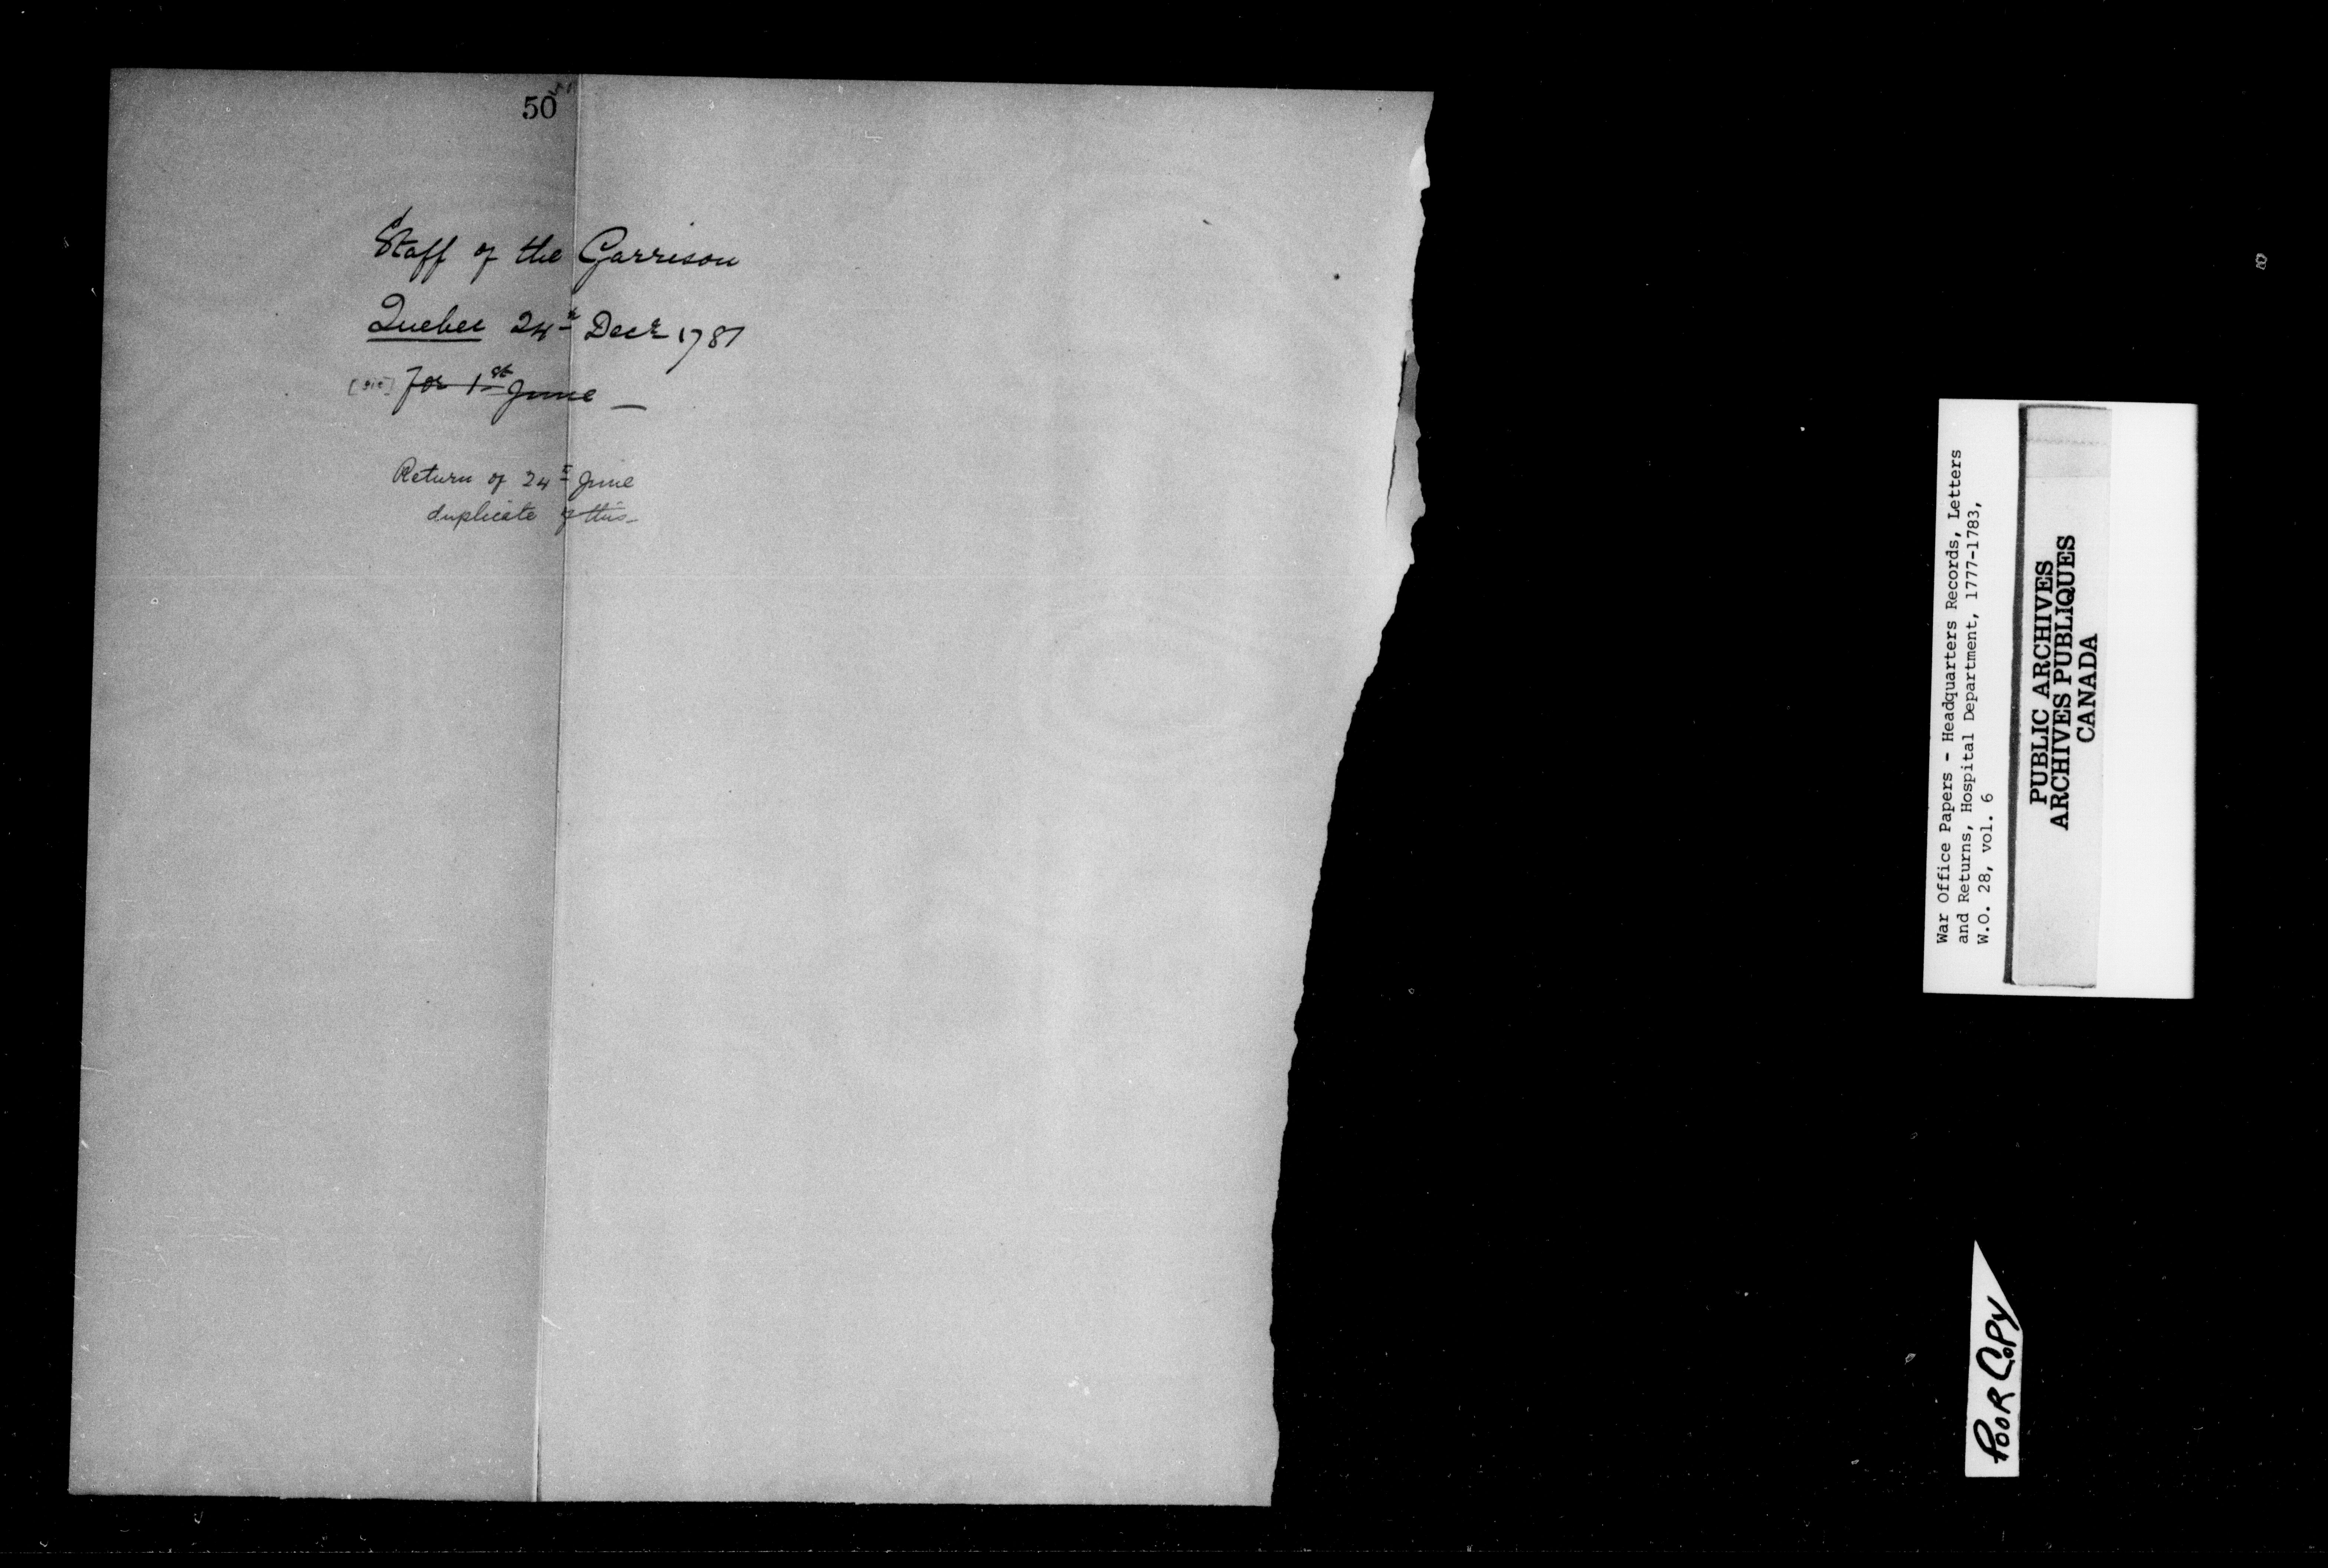 50
Staff of the Garrison
Quebec 24th Decr 1781
[sic] For 1st June —
Return of 24th June
duplicate of this—
War Office Papers - Headquarters Records, Letters
and Returns, Hospital Department, 1777-1783,
W.O. 28, vol. 6
PUBLIC ARCHIVES
ARCHIVES PUBLIQUES
CANADA
POOR COPY